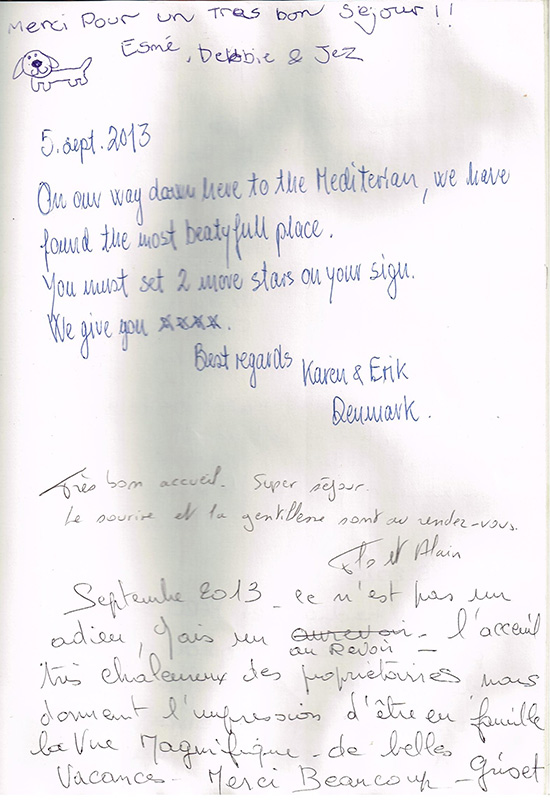 Merci Pour un Tres bon Sejour!!
Esmé, Debbie & Jez
5. sept. 2013
On our way down here to the Mediterian, we have
found the most beatyfull place.
You must set 2 more stars on your sign.
We give you ****.
Best regards Karen & Erik
Denmark.
Très bon accueil. Super séjour.
Le sourire et la gentillesse sont au rendez-vous.
Flo et Alain
Septembre 2013 - ce n'est pas un
adieu, Mais un aurevoir - l'acceuil
au Revoir -
très chaleureux des proprietaires nous
donnent l'impression d'être en famille
la Vue Magnifique - de belles
Vacances - Merci Beaucoup -